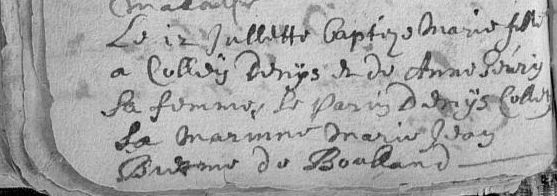 Le 12 Jullette baptize Marie fille
a Colley Denys et de Anne
sa femme, le parin Denys Colley
sa marinne Marie Jean
de Boulland